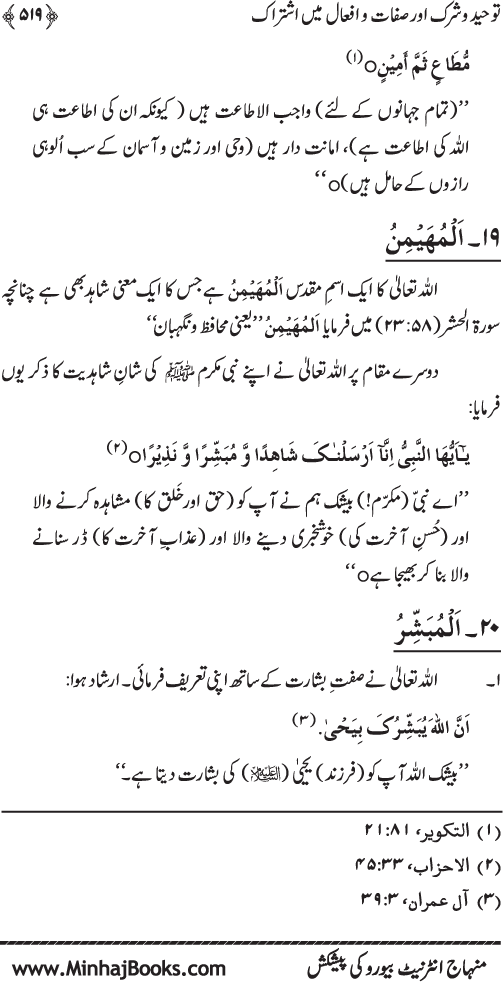 توحید و شرک اور صفات و افعال میں اشتراک ﴿۵۱۹﴾
مُّطَاعٍ ثَمَّ أَمِيْنٍ○(۱)
’’(تمام جہانوں کے لئے) واجب الاطاعت ہیں (کیونکہ ان کی اطاعت ہی
اللہ کی اطاعت ہے)، امانت دار ہیں (وحی اور زمین و آسمان کے سب اُلوہی
رازوں کے حامل ہیں)○‘‘
۱۹۔ اَلْمُهَيْمِنُ
اللہ تعالیٰ کا ایک اسمِ مقدس اَلْمُهَيْمِنُ ہے جس کا ایک معنی شاہد بھی ہے چنانچہ
سورۃ الحشر (۵۸:۲۳) میں فرمایا اَلمُهَيْمِنُ ’’یعنی محافظ و نگہبان‘‘
دوسرے مقام پر اللہ تعالیٰ نے اپنے نبی مکرم ﷺ کی شانِ شاہدیت کا ذکر یوں
فرمایا:
يٰٓاَيُّهَا النَّبِيُّ اِنَّآ اَرْسَلْنٰکَ شَاهِدًا وَّ مُبَشِّرًا وَّ نَذِيْرًا○(۲)
’’اے نبیّ (مکرّم!) بیشک ہم نے آپ کو (حق اور خَلق کا) مشاہدہ کرنے والا
اور (حُسنِ آخرت کی) خوشخبری دینے والا اور (عذابِ آخرت کا) ڈر سنانے
والا بنا کر بھیجا ہے○‘‘
۲۰۔ اَلْمُبَشِّرُ
۱۔ اللہ تعالیٰ نے صفتِ بشارت کے ساتھ اپنی تعریف فرمائی۔ ارشاد ہوا:
اَنَّ اللهَ يُبَشِّرُکَ بِيَحْيٰ.(۳)
’’بیشک اللہ آپ کو (فرزند) یحییٰ (علیہ السلام) کی بشارت دیتا ہے۔‘‘
(۱) التکویر، ۸۱:۲۱
(۲) الاحزاب، ۳۳:۴۵
(۳) آل عمران، ۳:۳۹
منہاج انٹرنیٹ بیورو کی پیشکش www.MinhajBooks.com